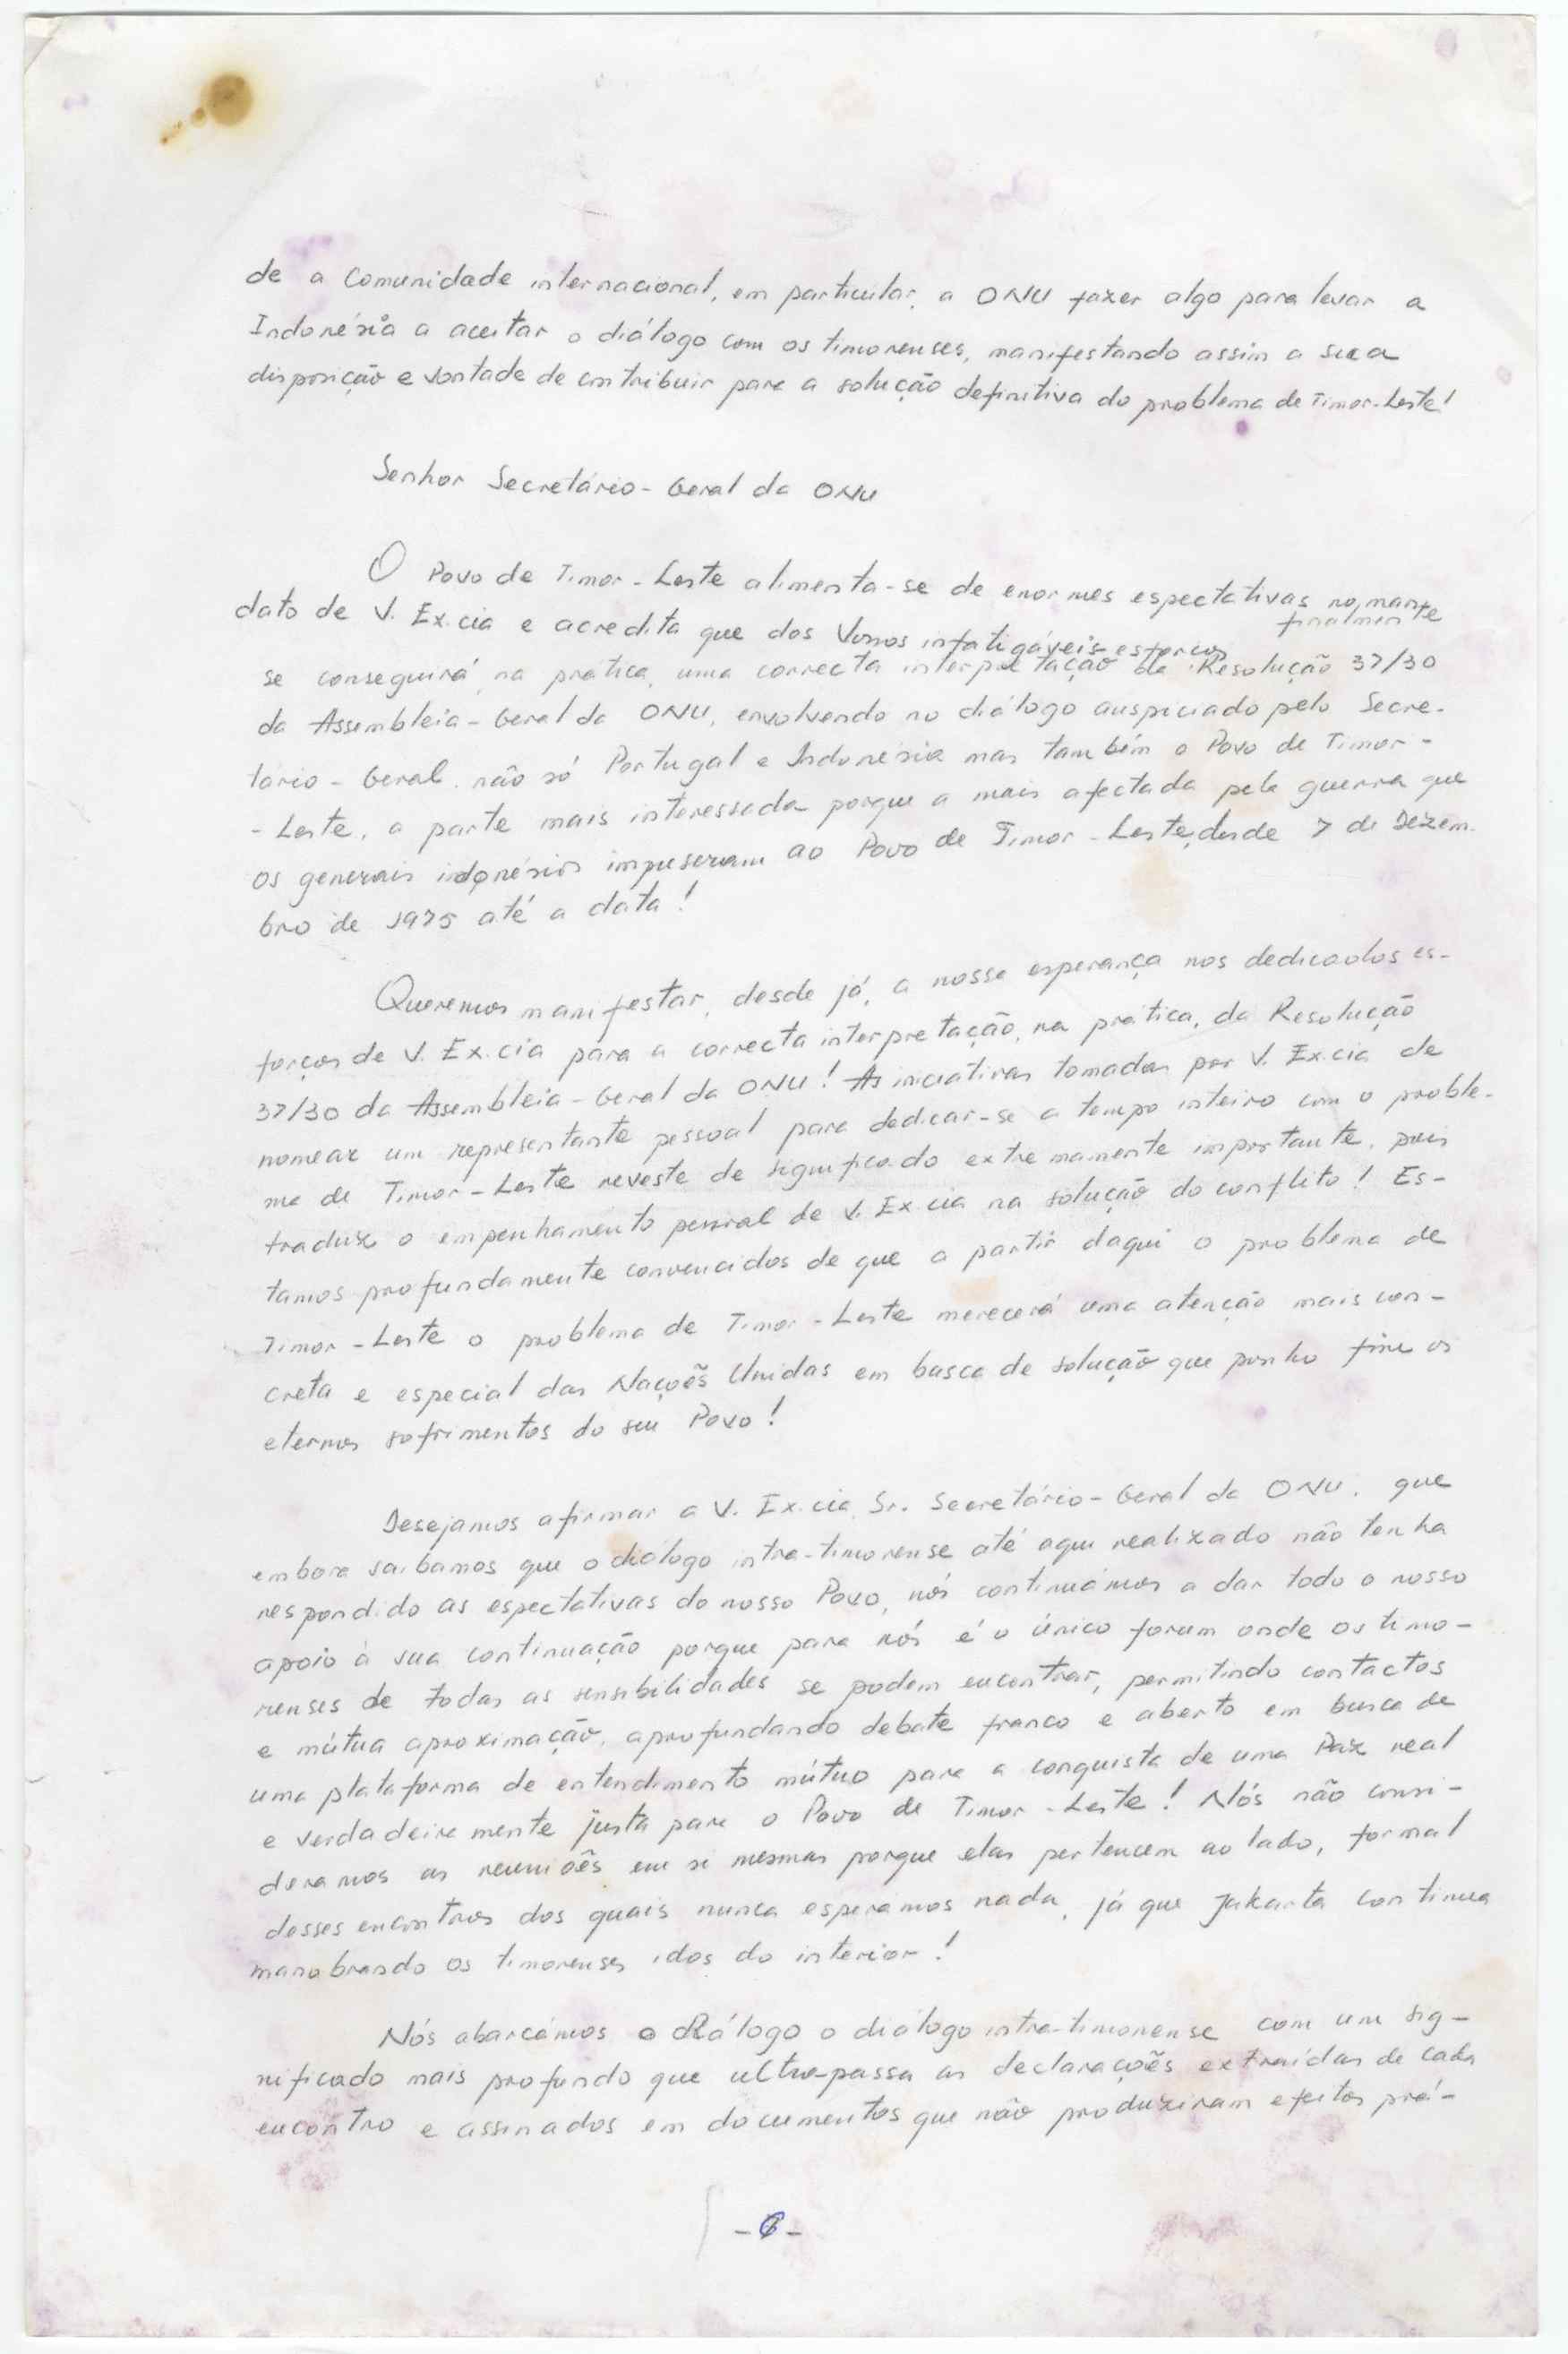 de a Comunidade internacional, em particular, a ONU fazer algo para levar a
Indonésia a aceitar o diálogo com os timorenses, manifestando assim a sua
disposição e vontade de contribuir para a solução definitiva do problema de Timor-Leste!
Senhor Secretário-Geral da ONU
O Povo de Timor-Leste alimenta-se de enormes espectativas no man-
dato de V. Ex.cia e acredita que dos Vossos infatigáveis esforços finalmente
se conseguirá, na prática, uma correcta interpretação da Resolução 37/30
da Assembleia-Geral da ONU, envolvendo no diálogo auspiciado pelo Secre-
tário-Geral, não só Portugal e Indonésia mas também o Povo de Timor-
-Leste, a parte mais interessada porque a mais afectada pela guerra que
os generais indonésios impuseram ao Povo de Timor-Leste, desde 7 de Dezem-
bro de 1975 até a data!
Queremos manifestar, desde já, a nossa esperança nos dedicados es-
forços de V. Ex.cia para a correcta interpretação, na prática, da Resolução
37/30 da Assembleia-Geral da ONU! As iniciativas tomadas por V. Ex.cia de
nomear um representante pessoal para dedicar-se a tempo inteiro com o proble-
ma de Timor-Leste reveste de significado extremamente importante, pois
traduz o empenhamento pessoal de V. Ex.cia na solução do conflito! Es-
tamos profundamente convencidos de que a partir daqui o problema de
Timor-Leste o problema de Timor-Leste merecerá uma atenção mais con-
creta e especial das Naçoẽs Unidas em busca de solução que ponha fim os
eternos sofrimentos do seu Povo!
Desejamos afirmar a V. Ex.cia, Sr. Secretário-Geral da ONU, que
embora saibamos que o diálogo intra-timorense até aqui realizado não tenha
respondido as espectativas do nosso Povo, nós continuámos a dar todo o nosso
apoio à sua continuação porque para nós é o único forum onde os timo-
renses de todas as sensibilidades se podem encontrar, permitindo contactos
e mútua aproximação, aprofundando debate franco e aberto em busca de
uma plataforma de entendimento mútuo para a conquista de uma Paz real
e verdadeiramente justa para o Povo de Timor-Leste! Nós não consi-
deramos as reunioẽs em si mesmas porque elas pertencem ao lado, formal
desses encontros dos quais nunca esperámos nada, já que Jakarta continua
manobrando os timorenses idos do interior!
Nós abarcámos o diálogo o diálogo intra-timorense com um sig-
nificado mais profundo que ultra-passa as declaraçoẽs extraídas de cada
encontro e assinados em documentos que não produziram efeitos prá-
-6-